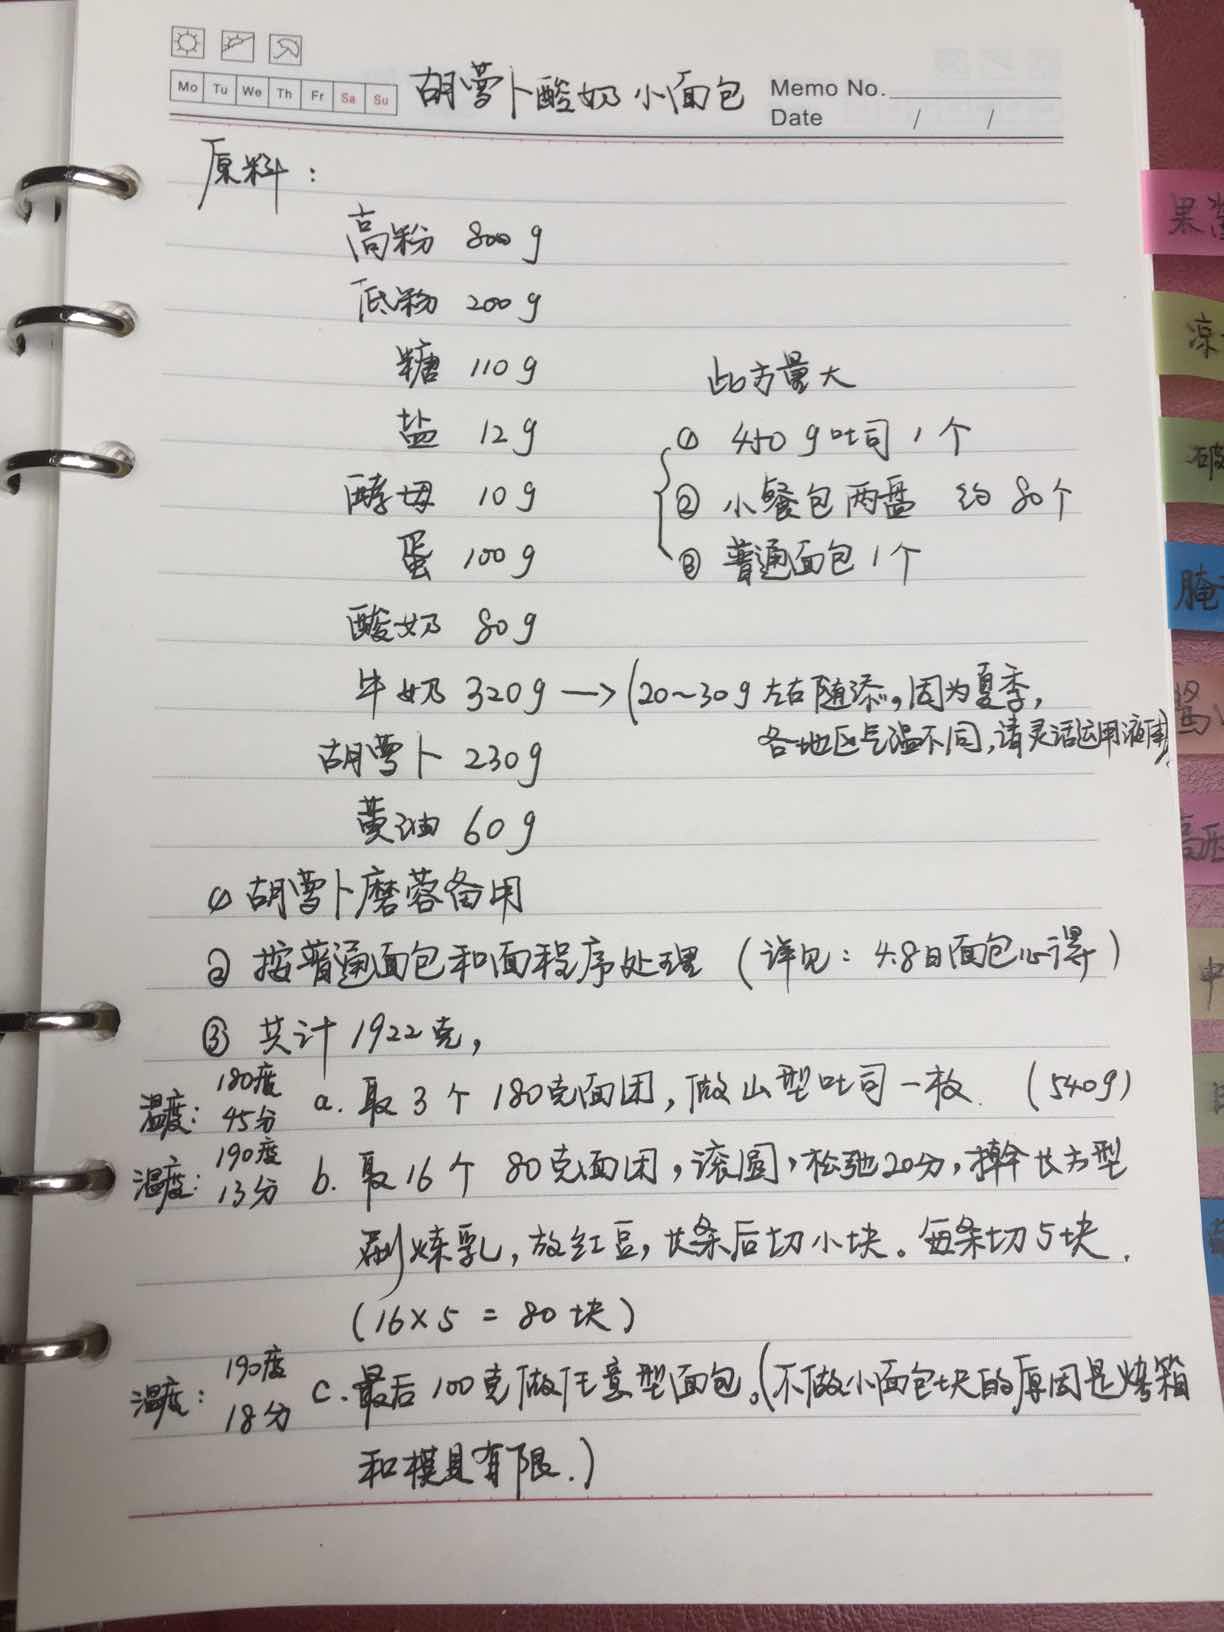 Mo Tu We Th Fr Sa Su
胡萝卜酸奶小面包
Memo No.
Date / /
原料：
高粉 800g
低粉 200g
糖 110g
盐 12g
酵母 10g
蛋 100g
酸奶 80g
牛奶 320g →(20~30g左右随添。因为夏季，
各地区气温不同，请灵活运用液体)
胡萝卜 230g
黄油 60g
此方量大
① 450g吐司1个
② 小餐包两盘 约80个
③ 普通面包1个
① 胡萝卜磨蓉备用
② 按普通面包和面程序处理（详见：4.8日面包心得）
③ 共计1922克，
温度：180度 45分 a. 取3个180克面团，做山型吐司一枚.（540g）
温度：190度 13分 b. 取16个80克面团，滚圆，松弛20分，擀长方型
刷炼乳，放红豆，长条后切小块。每条切5块.
（16×5=80块）
温度：190度 18分 c. 最后100克做任意型面包。（不做小面包块的原因是烤箱
和模具有限.）
果酱
凉
破
腌
酱
高
中